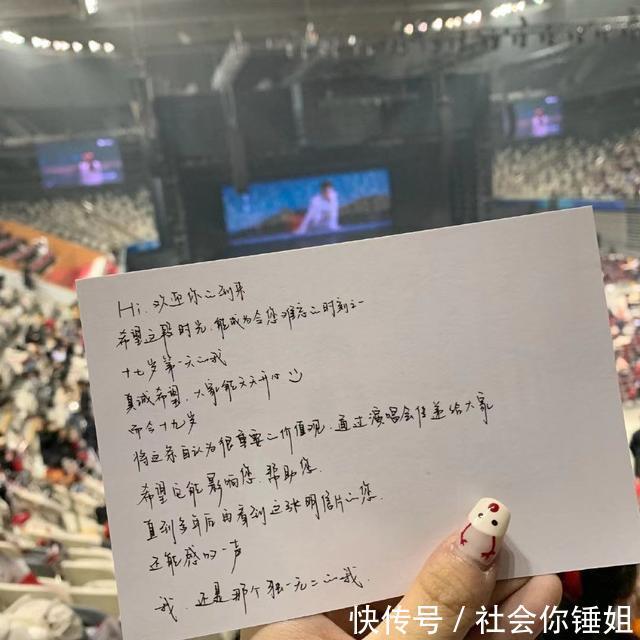 Hi. 欢迎你的到来
希望这段时光,能成为令您难忘的时刻之一
十七岁第一天的我
真诚希望,大家能天天开心
而今十九岁
将这条自认为很重要的价值观,通过演唱会传递给大家
希望它能影响您.帮助您.
直到多年后再看到这张明信片的您.
还能感叹一声
我,还是那个独一无二的我.
快传号 / 社会你锤姐